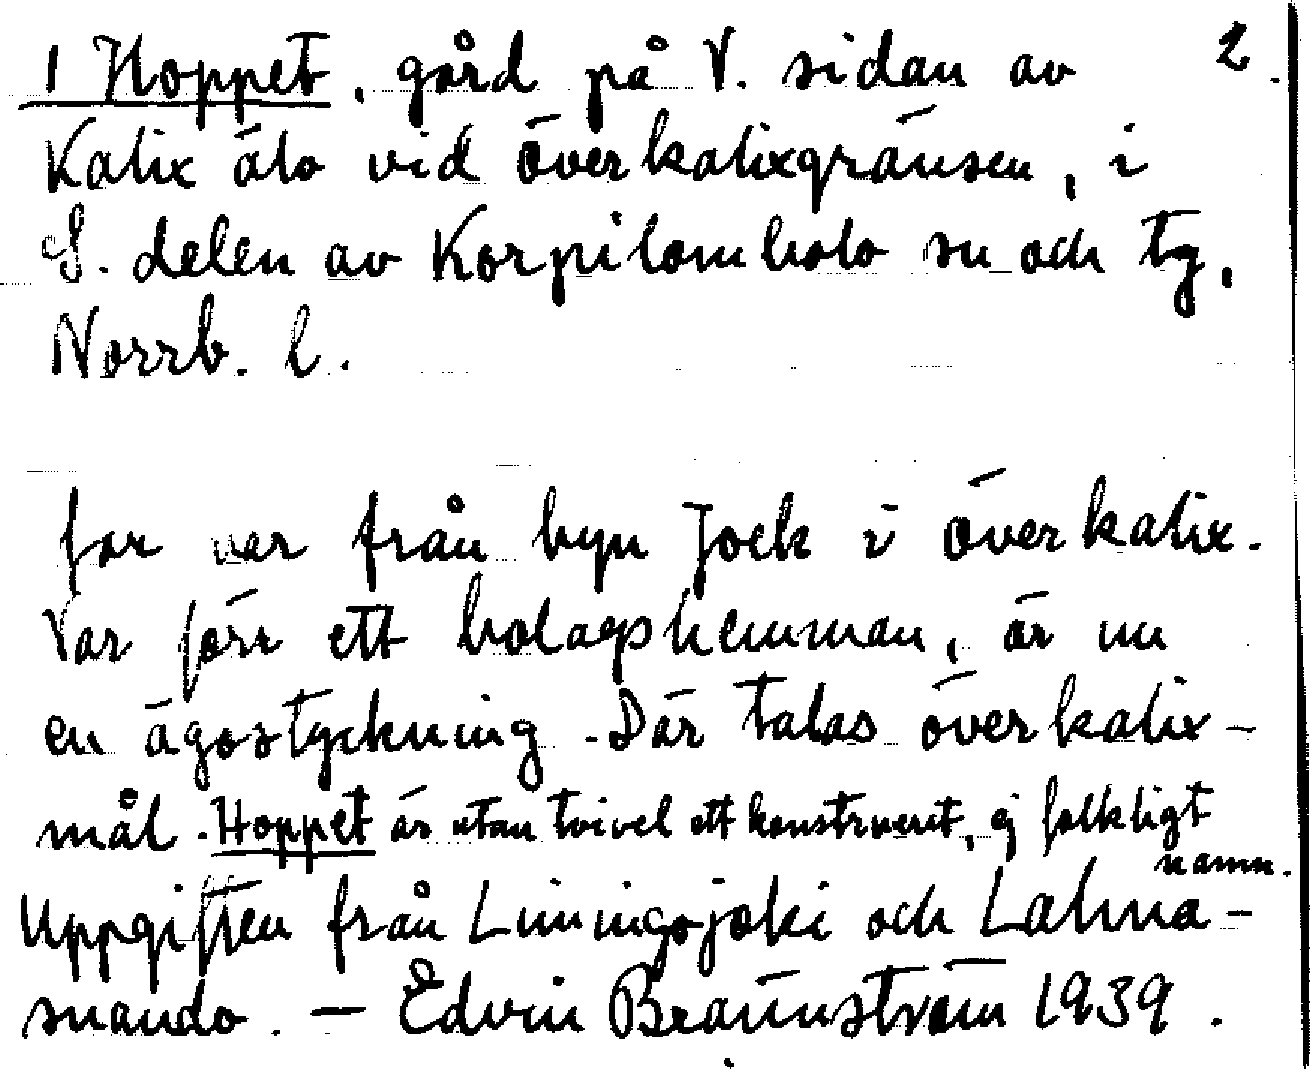 1 Hoppet, gård på V. sidan av 2.
Kalix älv vid Överkalixgränsen, i
S. delen av Korpilombolo sn och tg,
Norrb. l.
far ner från byn Jock i Överkalix.
Var förr ett bolagshemman, är nu
en ägostyckning. Där talas överkalix-
mål. Hoppet är utan tvivel ett konstruerat, ej folkligt
namn.
Uppgiften från Liningojoki och Lahna-
suando. — Edvin Brännström 1939.